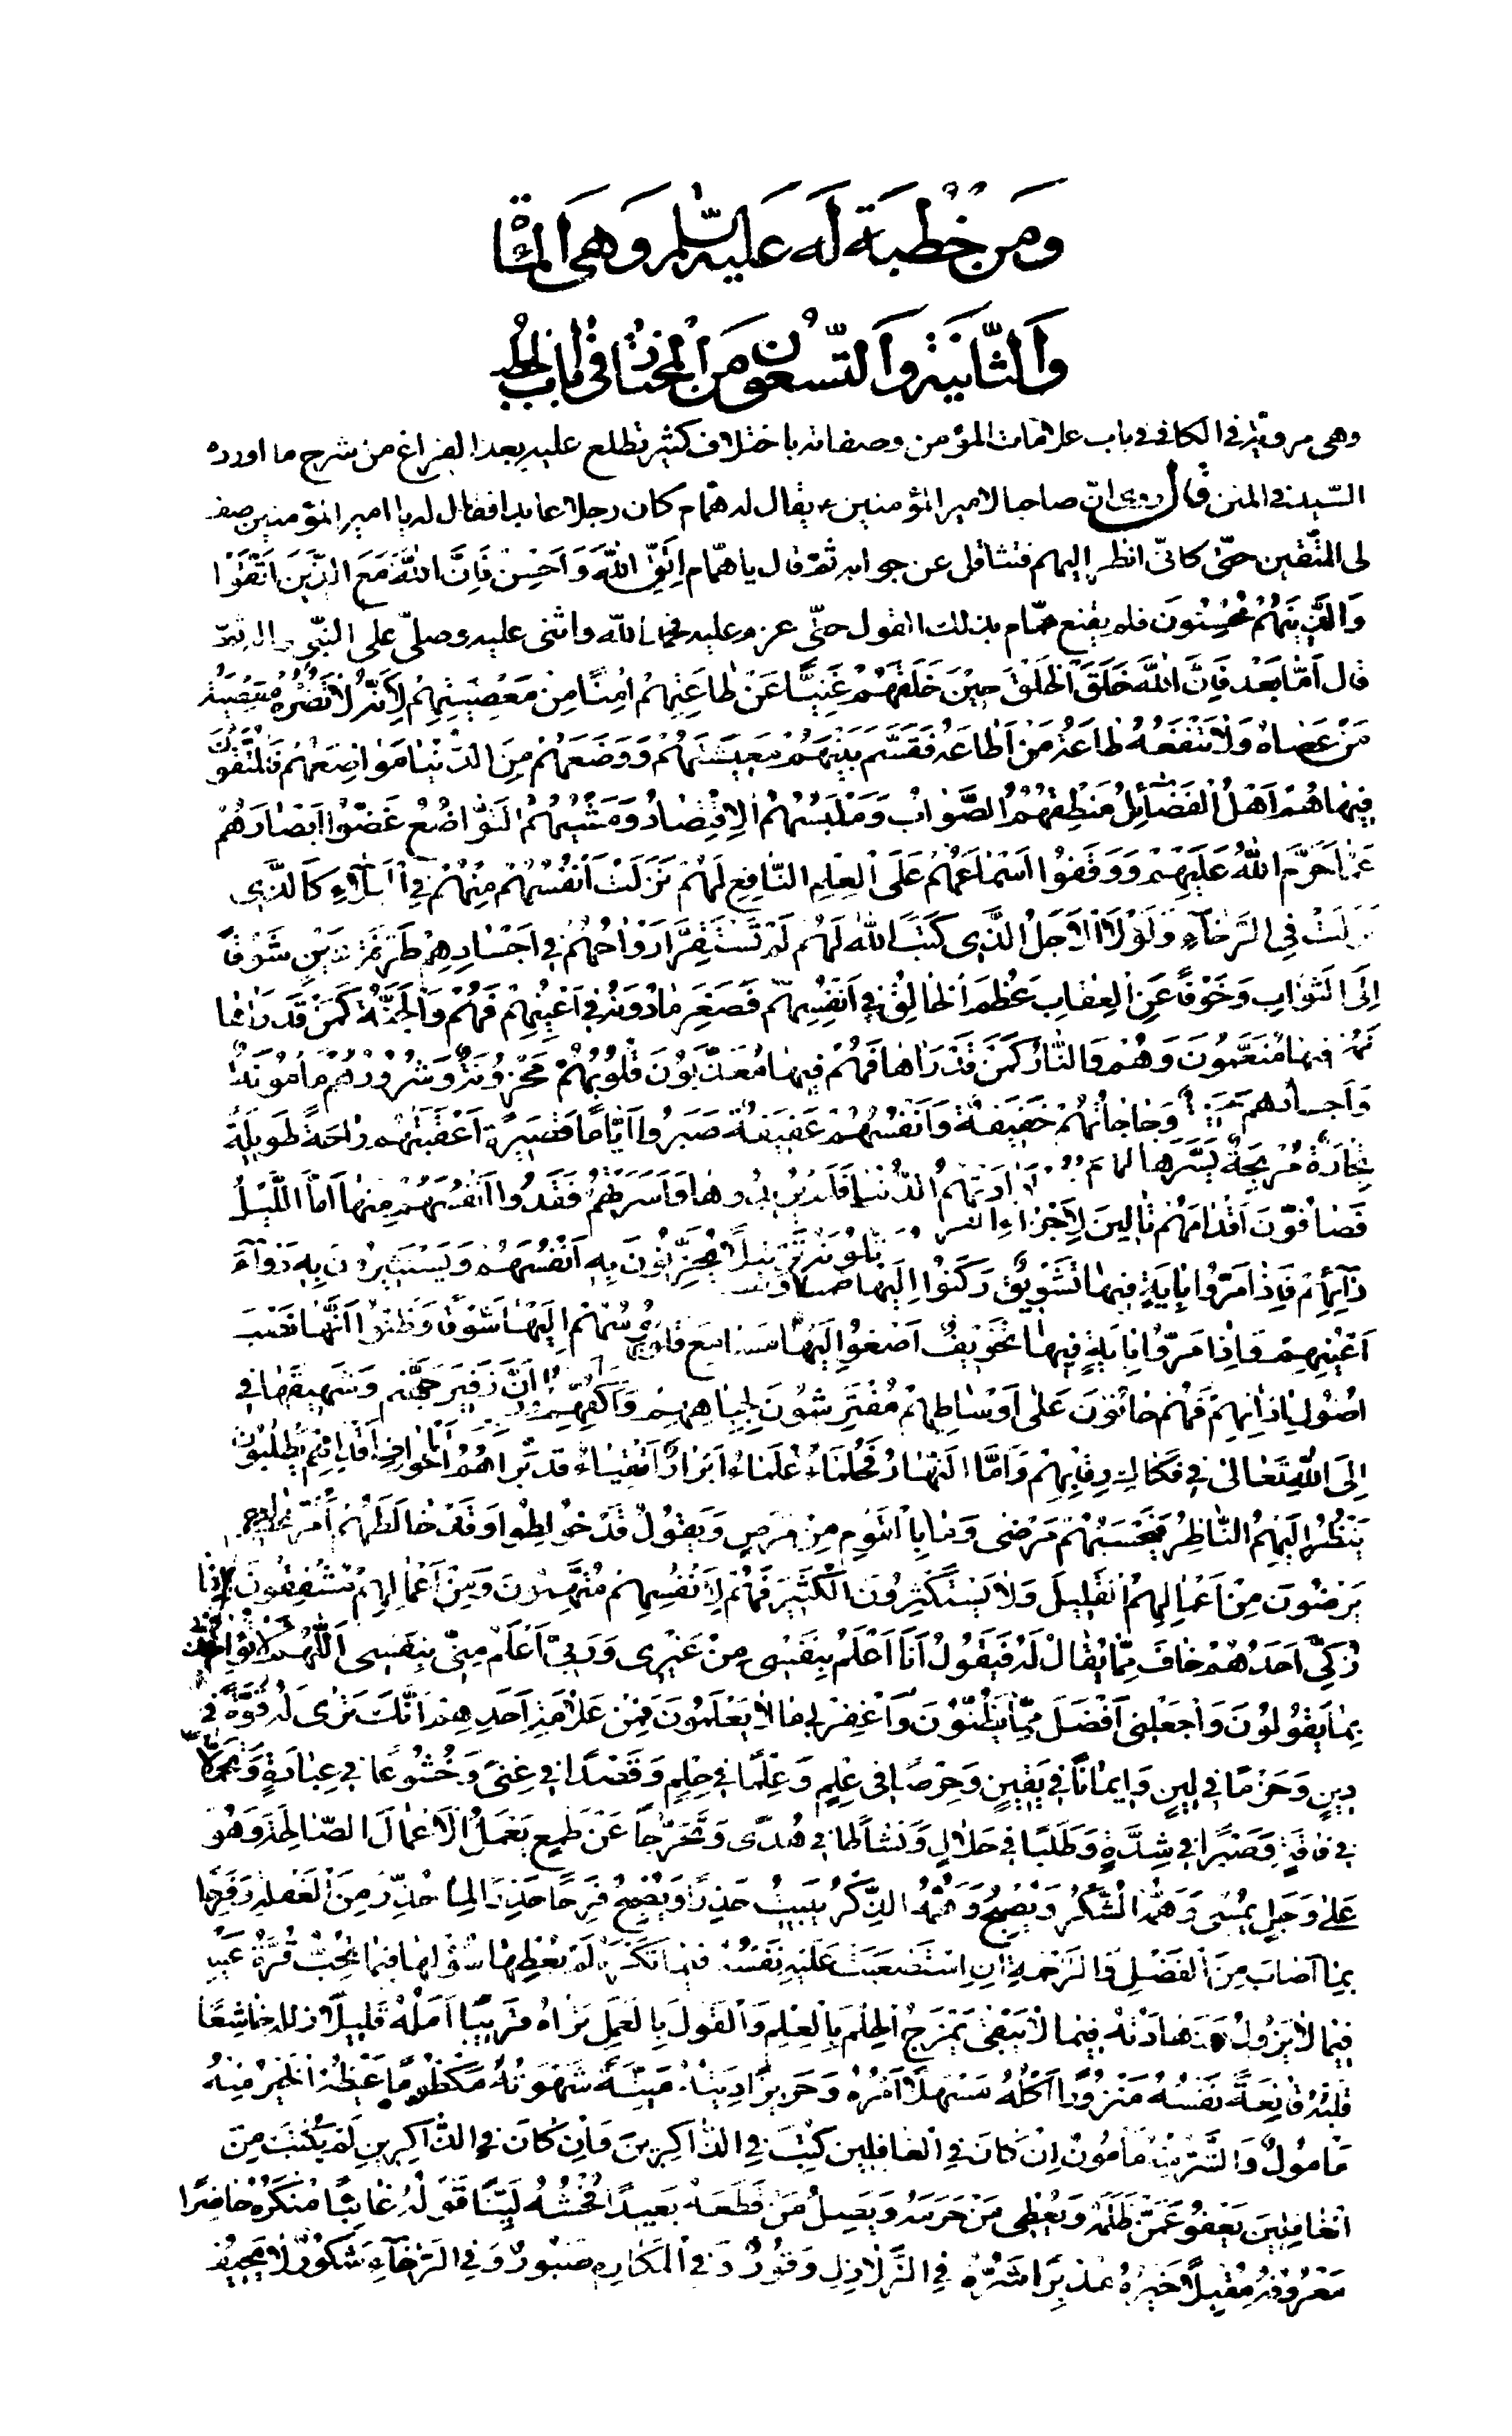 وَمِنْ خُطْبَةٍ لَهُ عَلَيْهِ السَّلَامُ وَهِيَ الْمِائَة
وَالثَّانِيَةُ وَالتِّسْعُونَ مِنَ الْمُخْتَارِ فِي بَابِ الْخُطَبِ
وهى مروية فى الكافى فى باب علامات المؤمن وصفاته باختلاف كثير تطلع عليه بعد الفراغ من شرح ما اورده
السيد فى المتن قال روى ان صاحبا لامير المؤمنين ع يقال له همام كان رجلا عابدا فقال له يا امير المؤمنين صف
لى المتقين حتى كانى انظر اليهم فتثاقل عن جوابه ثم قال يا همام اِتَّقِ اللهَ وَاَحْسِنْ فَاِنَّ اللهَ مَعَ الَّذِينَ اتَّقَوْا
وَالَّذِينَ هُمْ مُحْسِنُونَ فلم يقنع همام بذلك القول حتى عزم عليه فحمد الله واثنى عليه وصلى على النبى واله ثم
قال اَمَّا بَعْدُ فَاِنَّ اللهَ خَلَقَ الْخَلْقَ حِينَ خَلَقَهُمْ غَنِيًّا عَنْ طَاعَتِهِمْ امِنًا مِنْ مَعْصِيَتِهِمْ لِاَنَّهُ لَا تَضُرُّهُ مَعْصِيَةُ
مَنْ عَصَاهُ وَلَا تَنْفَعُهُ طَاعَةُ مَنْ اَطَاعَهُ فَقَسَّمَ بَيْنَهُمْ مَعِيشَتَهُمْ وَوَضَعَهُمْ مِنَ الدُّنْيَا مَوَاضِعَهُمْ فَالْمُتَّقُونَ
فِيهَا هُمْ اَهْلُ الْفَضَآئِلِ مَنْطِقُهُمُ الصَّوَابُ وَمَلْبَسُهُمُ الْاِقْتِصَادُ وَمَشْيُهُمُ التَّوَاضُعُ غَضُّوا اَبْصَارَهُمْ
عَمَّا حَرَّمَ اللهُ عَلَيْهِمْ وَوَقَفُوا اَسْمَاعَهُمْ عَلَى الْعِلْمِ النَّافِعِ لَهُمْ نَزَلَتْ اَنْفُسُهُمْ مِنْهُمْ فِي الْبَلَآءِ كَالَّذِي
نَزَلَتْ فِي الرَّخَآءِ وَلَوْلَا الْاَجَلُ الَّذِي كَتَبَ اللهُ لَهُمْ لَمْ تَسْتَقِرَّ اَرْوَاحُهُمْ فِي اَجْسَادِهِمْ طَرْفَةَ عَيْنٍ شَوْقًا
اِلَى الثَّوَابِ وَخَوْفًا مِنَ الْعِقَابِ عَظُمَ الْخَالِقُ فِي اَنْفُسِهِمْ فَصَغُرَ مَا دُونَهُ فِي اَعْيُنِهِمْ فَهُمْ وَالْجَنَّةُ كَمَنْ قَدْ رَاهَا
فَهُمْ فِيهَا مُنَعَّمُونَ وَهُمْ وَالنَّارُ كَمَنْ قَدْ رَاهَا فَهُمْ فِيهَا مُعَذَّبُونَ قُلُوبُهُمْ مَحْزُونَةٌ وَشُرُورُهُمْ مَأْمُونَةٌ
وَاَجْسَادُهُمْ وَحَاجَاتُهُمْ خَفِيفَةٌ وَاَنْفُسُهُمْ عَفِيفَةٌ صَبَرُوا اَيَّامًا قَصِيرَةً اَعْقَبَتْهُمْ رَاحَةً طَوِيلَةً
تِجَارَةٌ مُرْبِحَةٌ يَسَّرَهَا لَهُمْ اَرَادَتْهُمُ الدُّنْيَا فَلَمْ يُرِيدُوهَا وَاَسَرَتْهُمْ فَفَدَوْا اَنْفُسَهُمْ مِنْهَا اَمَّا اللَّيْلُ
فَصَافُّونَ اَقْدَامَهُمْ تَالِينَ لِاَجْزَاءِ يُرَتِّلُونَهُ تَرْتِيلًا يُحَزِّنُونَ بِهِ اَنْفُسَهُمْ وَيَسْتَثِيرُونَ بِهِ دَوَآءَ
دَآئِهِمْ فَاِذَا مَرُّوا بِايَةٍ فِيهَا تَشْوِيقٌ رَكَنُوا اِلَيْهَا طَمَعًا وَ نُفُوسُهُمْ اِلَيْهَا شَوْقًا وَظَنُّوا اَنَّهَا نُصْبَ
اَعْيُنِهِمْ وَاِذَا مَرُّوا بِايَةٍ فِيهَا تَخْوِيفٌ اَصْغَوْا اِلَيْهَا مَسَامِعَ قُلُوبِهِمْ اَنَّ زَفِيرَ جَهَنَّمَ وَشَهِيقَهَا فِي
اُصُولِ اذَانِهِمْ فَهُمْ حَانُونَ عَلَى اَوْسَاطِهِمْ مُفْتَرِشُونَ لِجِبَاهِهِمْ وَاَكُفِّهِمْ اَقْدَامِهِمْ يَطْلُبُونَ
اِلَى اللهِ تَعَالَى فِي فَكَاكِ رِقَابِهِمْ وَاَمَّا النَّهَارُ فَحُلَمَاءُ عُلَمَاءُ اَبْرَارٌ اَتْقِيَاءُ قَدْ بَرَاهُمُ الْخَوْفُ
يَنْظُرُ اِلَيْهِمُ النَّاظِرُ فَيَحْسَبُهُمْ مَرْضَى وَمَا بِالْقَوْمِ مِنْ مَرَضٍ وَيَقُولُ قَدْ خُولِطُوا وَقَدْ خَالَطَهُمْ اَمْرٌ عَظِيمٌ
يَرْضَوْنَ مِنْ اَعْمَالِهِمُ الْقَلِيلَ وَلَا يَسْتَكْثِرُونَ الْكَثِيرَ فَهُمْ لِاَنْفُسِهِمْ مُتَّهِمُونَ وَمِنْ اَعْمَالِهِمْ مُشْفِقُونَ اِذَا
زُكِّيَ اَحَدُهُمْ خَافَ مِمَّا يُقَالُ لَهُ فَيَقُولُ اَنَا اَعْلَمُ بِنَفْسِي مِنْ غَيْرِي وَرَبِّي اَعْلَمُ مِنِّي بِنَفْسِي اَللَّهُمَّ لَا تُؤَاخِذْنِي
بِمَا يَقُولُونَ وَاجْعَلْنِي اَفْضَلَ مِمَّا يَظُنُّونَ وَاغْفِرْ لِي مَا لَا يَعْلَمُونَ فَمِنْ عَلَامَةِ اَحَدِهِمْ اَنَّكَ تَرَى لَهُ قُوَّةً فِي
دِينٍ وَحَزْمًا فِي لِينٍ وَاِيمَانًا فِي يَقِينٍ وَحِرْصًا فِي عِلْمٍ وَعِلْمًا فِي حِلْمٍ وَقَصْدًا فِي غِنًى وَخُشُوعًا فِي عِبَادَةٍ وَتَجَمُّلًا
فِي فَاقَةٍ وَصَبْرًا فِي شِدَّةٍ وَطَلَبًا فِي حَلَالٍ وَنَشَاطًا فِي هُدًى وَتَحَرُّجًا عَنْ طَمَعٍ يَعْمَلُ الْاَعْمَالَ الصَّالِحَةَ وَهُوَ
عَلَى وَجَلٍ يُمْسِي وَهَمُّهُ الشُّكْرُ وَيُصْبِحُ وَهَمُّهُ الذِّكْرُ يَبِيتُ حَذِرًا وَيُصْبِحُ فَرِحًا حَذِرًا لِمَا حُذِّرَ مِنَ الْغَفْلَةِ وَفَرِحًا
بِمَا اَصَابَ مِنَ الْفَضْلِ وَالرَّحْمَةِ اِنِ اسْتَصْعَبَتْ عَلَيْهِ نَفْسُهُ فِيمَا تَكْرَهُ لَمْ يُعْطِهَا سُؤْلَهَا فِيمَا تُحِبُّ قُرَّةُ عَيْنِهِ
فِيمَا لَا يَزُولُ وَزَهَادَتُهُ فِيمَا لَا يَبْقَى يَمْزُجُ الْحِلْمَ بِالْعِلْمِ وَالْقَوْلَ بِالْعَمَلِ تَرَاهُ قَرِيبًا اَمَلُهُ قَلِيلًا زَلَلُهُ خَاشِعًا
قَلْبُهُ قَانِعَةً نَفْسُهُ مَنْزُورًا اَكْلُهُ سَهْلًا اَمْرُهُ وَحَرِيزًا دِينُهُ مَيِّتَةً شَهْوَتُهُ مَكْظُومًا غَيْظُهُ اَلْخَيْرُ مِنْهُ
مَأْمُولٌ وَالشَّرُّ مِنْهُ مَأْمُونٌ اِنْ كَانَ فِي الْغَافِلِينَ كُتِبَ فِي الذَّاكِرِينَ وَاِنْ كَانَ فِي الذَّاكِرِينَ لَمْ يُكْتَبْ مِنَ
الْغَافِلِينَ يَعْفُو عَمَّنْ ظَلَمَهُ وَيُعْطِي مَنْ حَرَمَهُ وَيَصِلُ مَنْ قَطَعَهُ بَعِيدًا فُحْشُهُ لَيِّنًا قَوْلُهُ غَائِبًا مُنْكَرُهُ حَاضِرًا
مَعْرُوفُهُ مُقْبِلًا خَيْرُهُ مُدْبِرًا شَرُّهُ فِي الزَّلَازِلِ وَقُورٌ وَفِي الْمَكَارِهِ صَبُورٌ وَفِي الرَّخَآءِ شَكُورٌ لَا يَحِيفُ